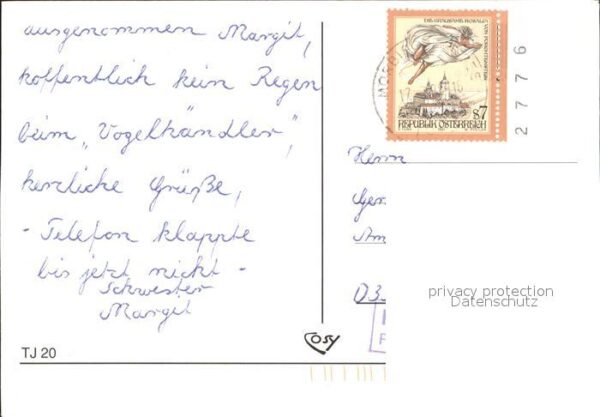 ausgenommen Margit,
hoffentlich kein Regen
beim „Vogelhändler",
herzliche Grüße,
- Telefon klappte
bis jetzt nicht -
Schwester
Margit
TJ 20
cosy
S7
REPUBLIK ÖSTERREICH
2776
Herrn
Ger
Am
D3
privacy protection
Datenschutz